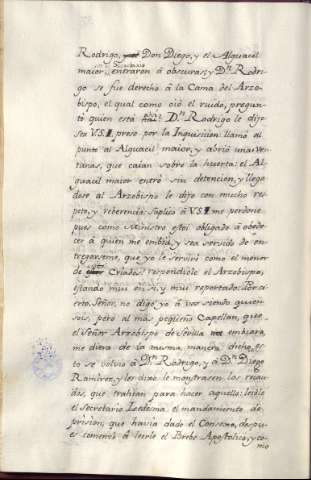 Rodrigo, Don Diego, y el Alguacil
maior, entraron á obscuras; y Dn. Rodri-
go se fue derecho á la Cama del Arzo-
bispo, el qual como oió el ruido, pregun-
tó quien está Dn. Rodrigo le dijo
sea V.S.I. preso por la Inquisicion: llamó al
punto al Alguacil maior, y abrió unas ven-
tanas, que caían sobre la huerta: el Al-
guacil maior entró sin detencion, y llegan-
dose al Arzobispo le dijo con mucho res-
peto, y reberencia: Suplico á V.S.I. me perdone
pues como Ministro estoi obligado á obede-
cer á quien me embia, y sea servido de en-
tregarseme, que yo le serviré como el menor
de Criados: respondiole el Arzobispo,
estando mui en sí, y mui reportado: Por ci-
erto, Señor, no digo yo á vos siendo quien
sois, peró al mas pequeño Capellan, que
el Señor Arzobispo de Sevilla embiara
me diera de la misma manera: dicho es-
to se volvió á Dn. Rodrigo, y á Dn. Diego
Ramirez, y les dixo le monstrasen los recau-
dos, que trahian para hacer aquello: leióle
el Secretario Ledesma el mandamiento de
prision, que havia dado el Consexo, despu-
es comenzó á leerle el Brebe Apostolico, y co-
mo